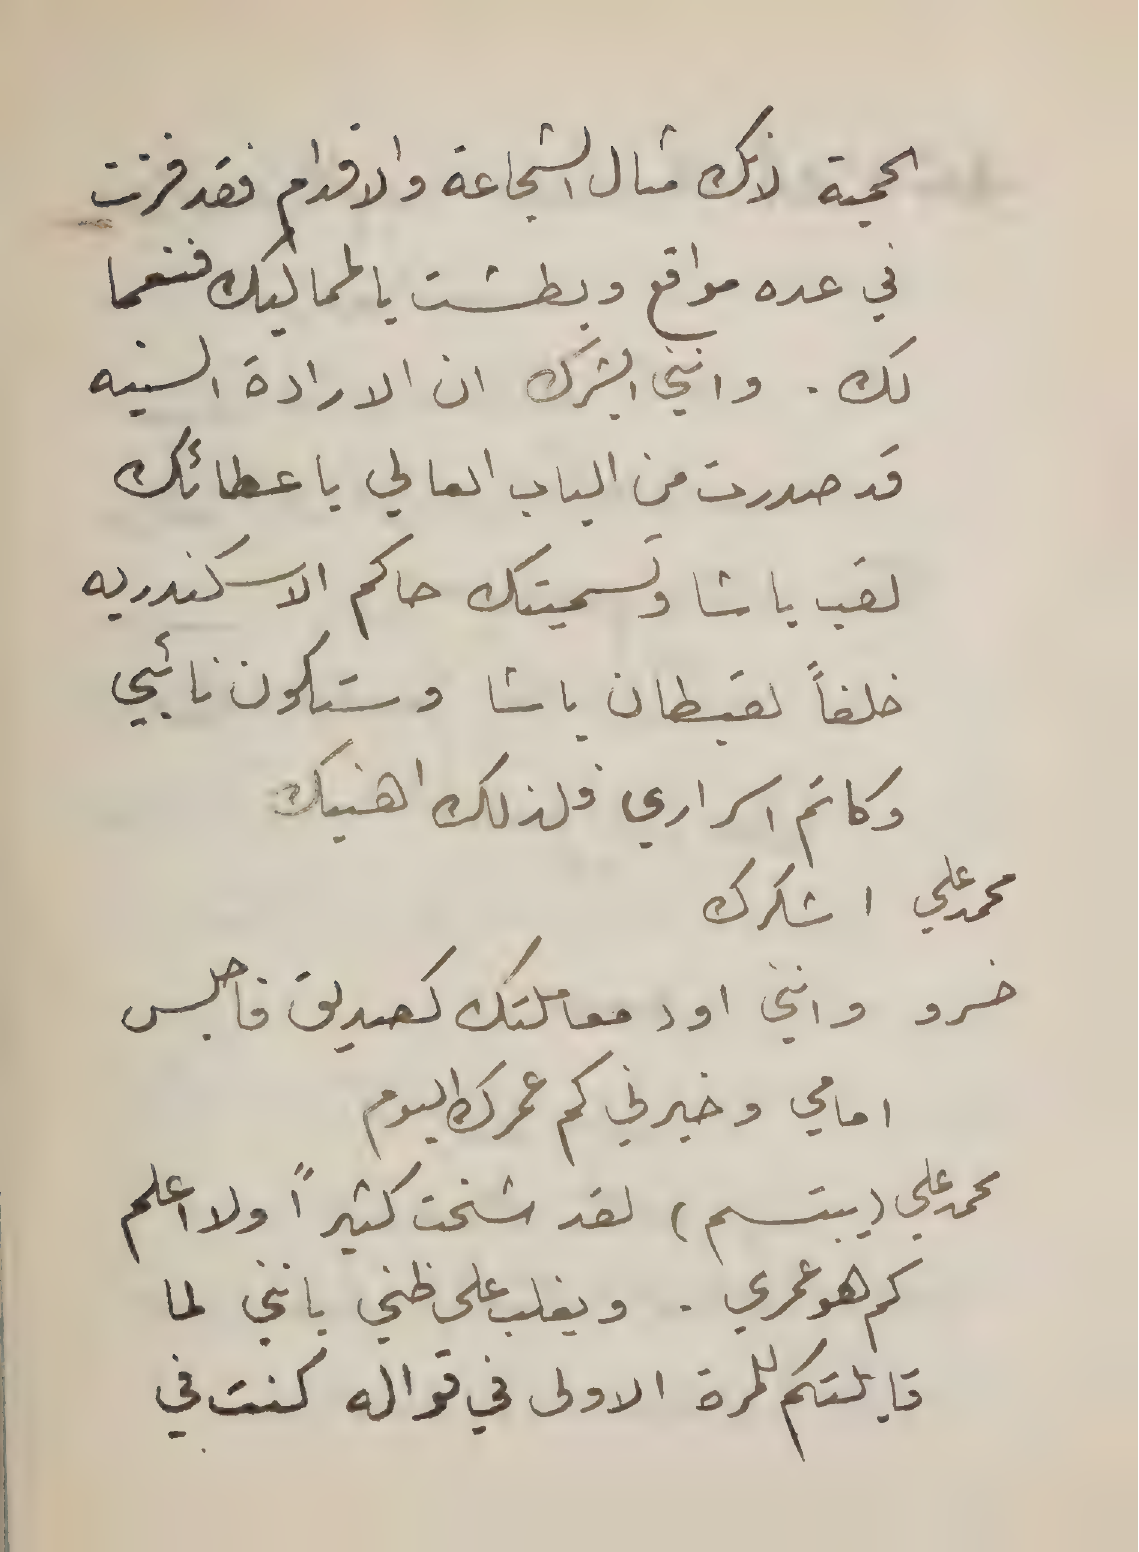 الحمية لانك مثال الشجاعة والاقدام فقد فزت
في عده مواقع وبطشت بالمماليك فنعما
لك . وانني ابشرك ان الارادة السنيه
قد صدرت من الباب العالي باعطائك
لقب باشا وتسميتك حاكم الاسكندريه
خلفاً لقبطان باشا وستكون نائبي
وكاتم اسراري فلذلك اهنيك
محمد علي اشكرك
خسرو وانني اود معاملتك كصديق فاجلس
امامي وخبرني كم عمرك اليوم
محمد علي (يبتسم) لقد شخت كثيراً ولا اعلم
كم هو عمري . ويغلب على ظني بانني لما
قابلتكم للمرة الاولى في قواله كنت في